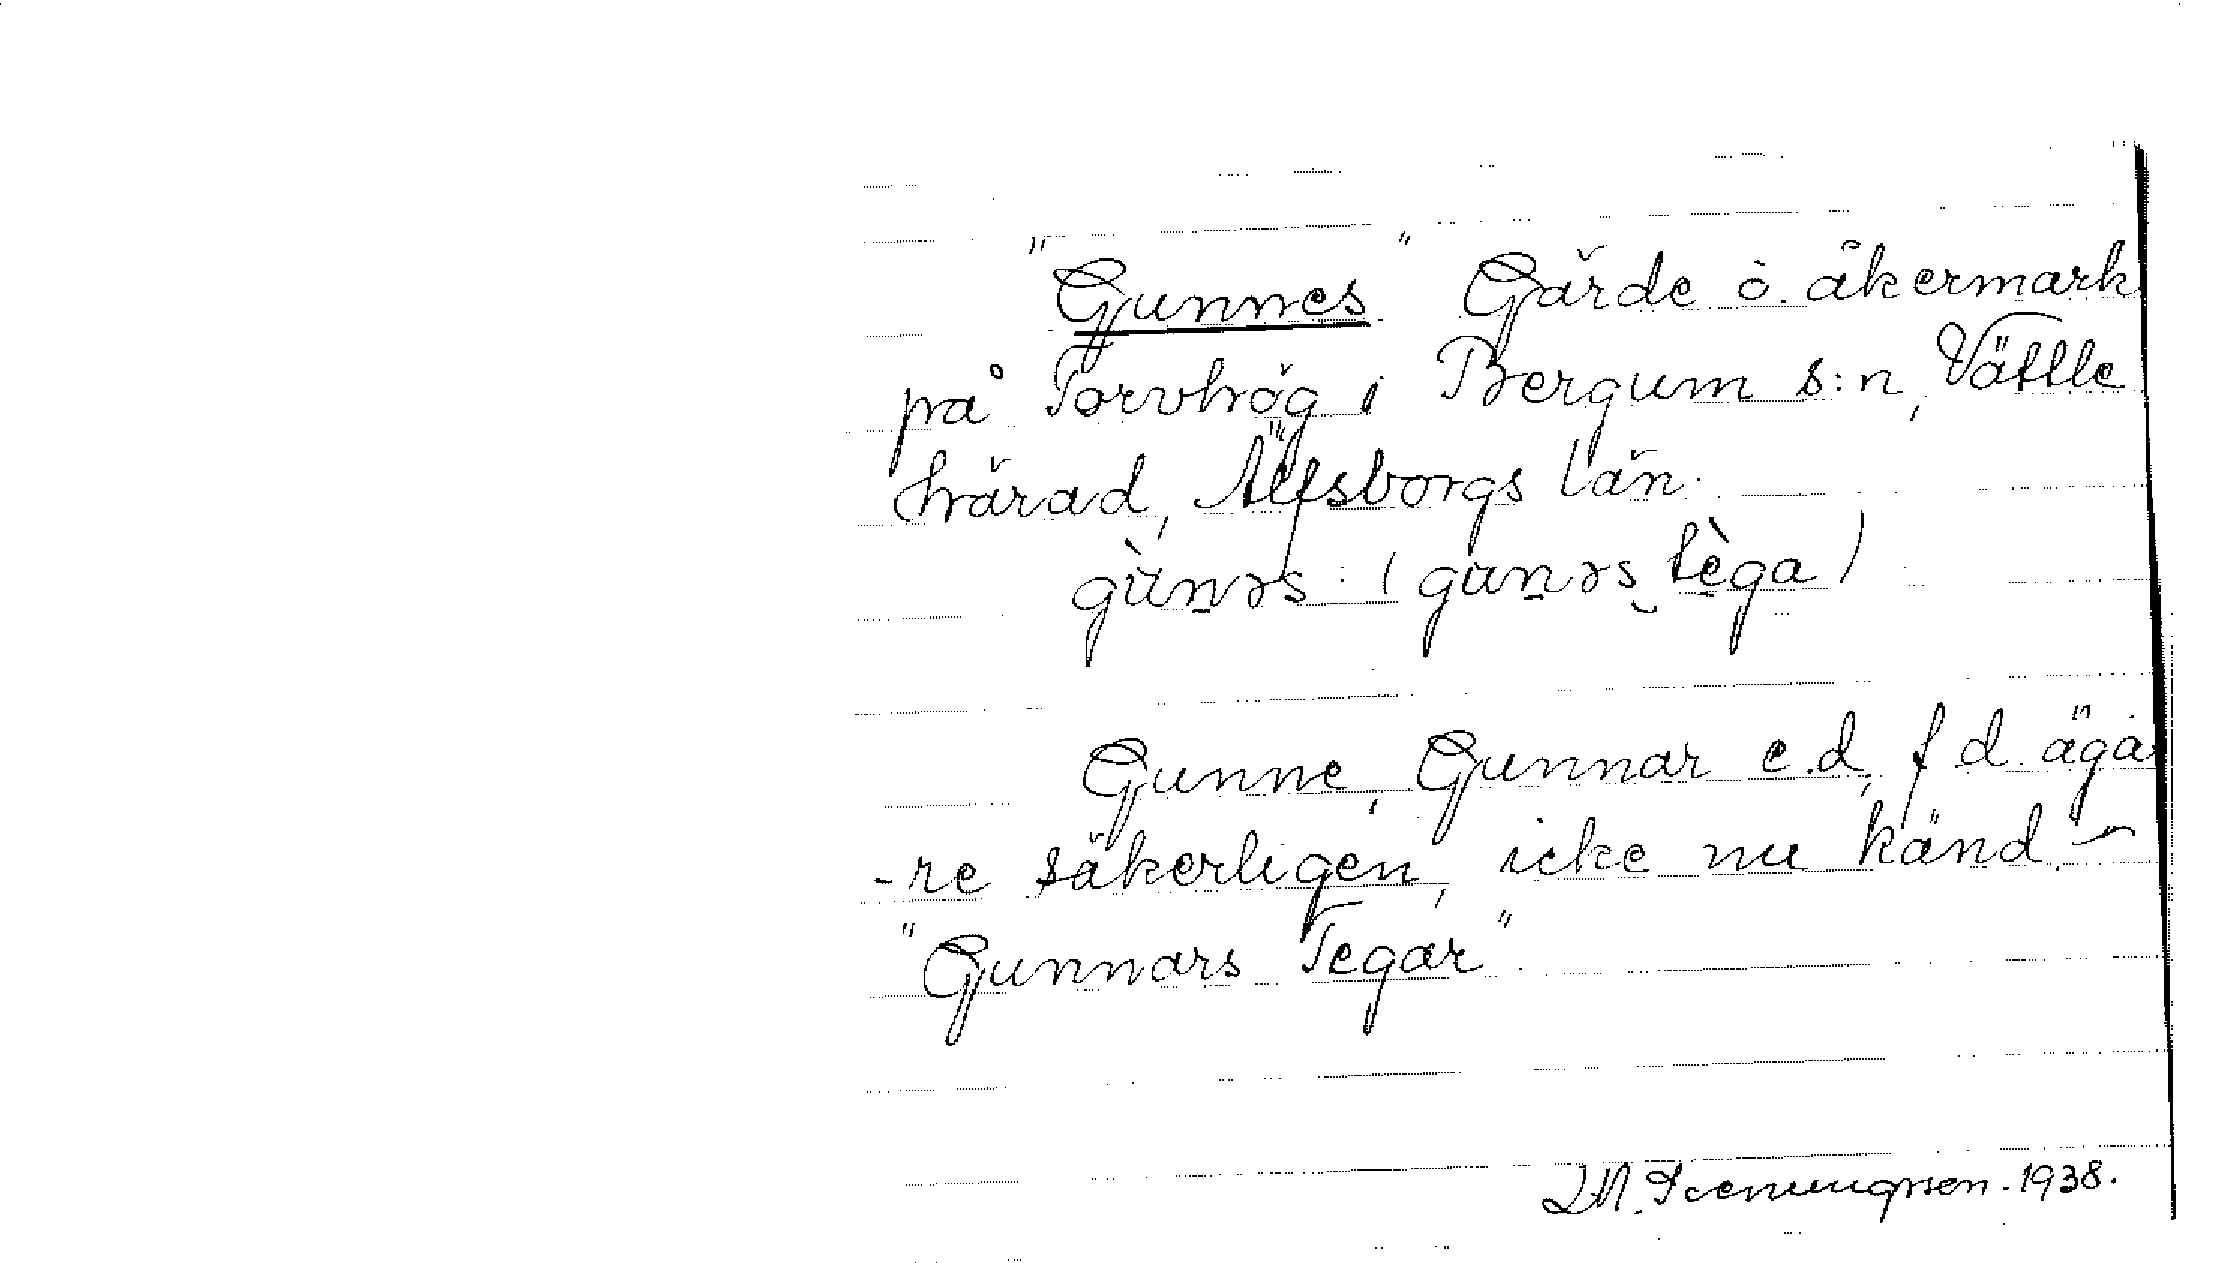 "Gunnes" Gärde o. åkermark
på Torvhög i Bergum s:n, Vättle
härad, Älfsborgs län.
gùnəs (gunəs tèga)
Gunne, Gunnar e.d, f d. äga
-re säkerligen, icke nu känd. –
"Gunnars Tegar"
1938.